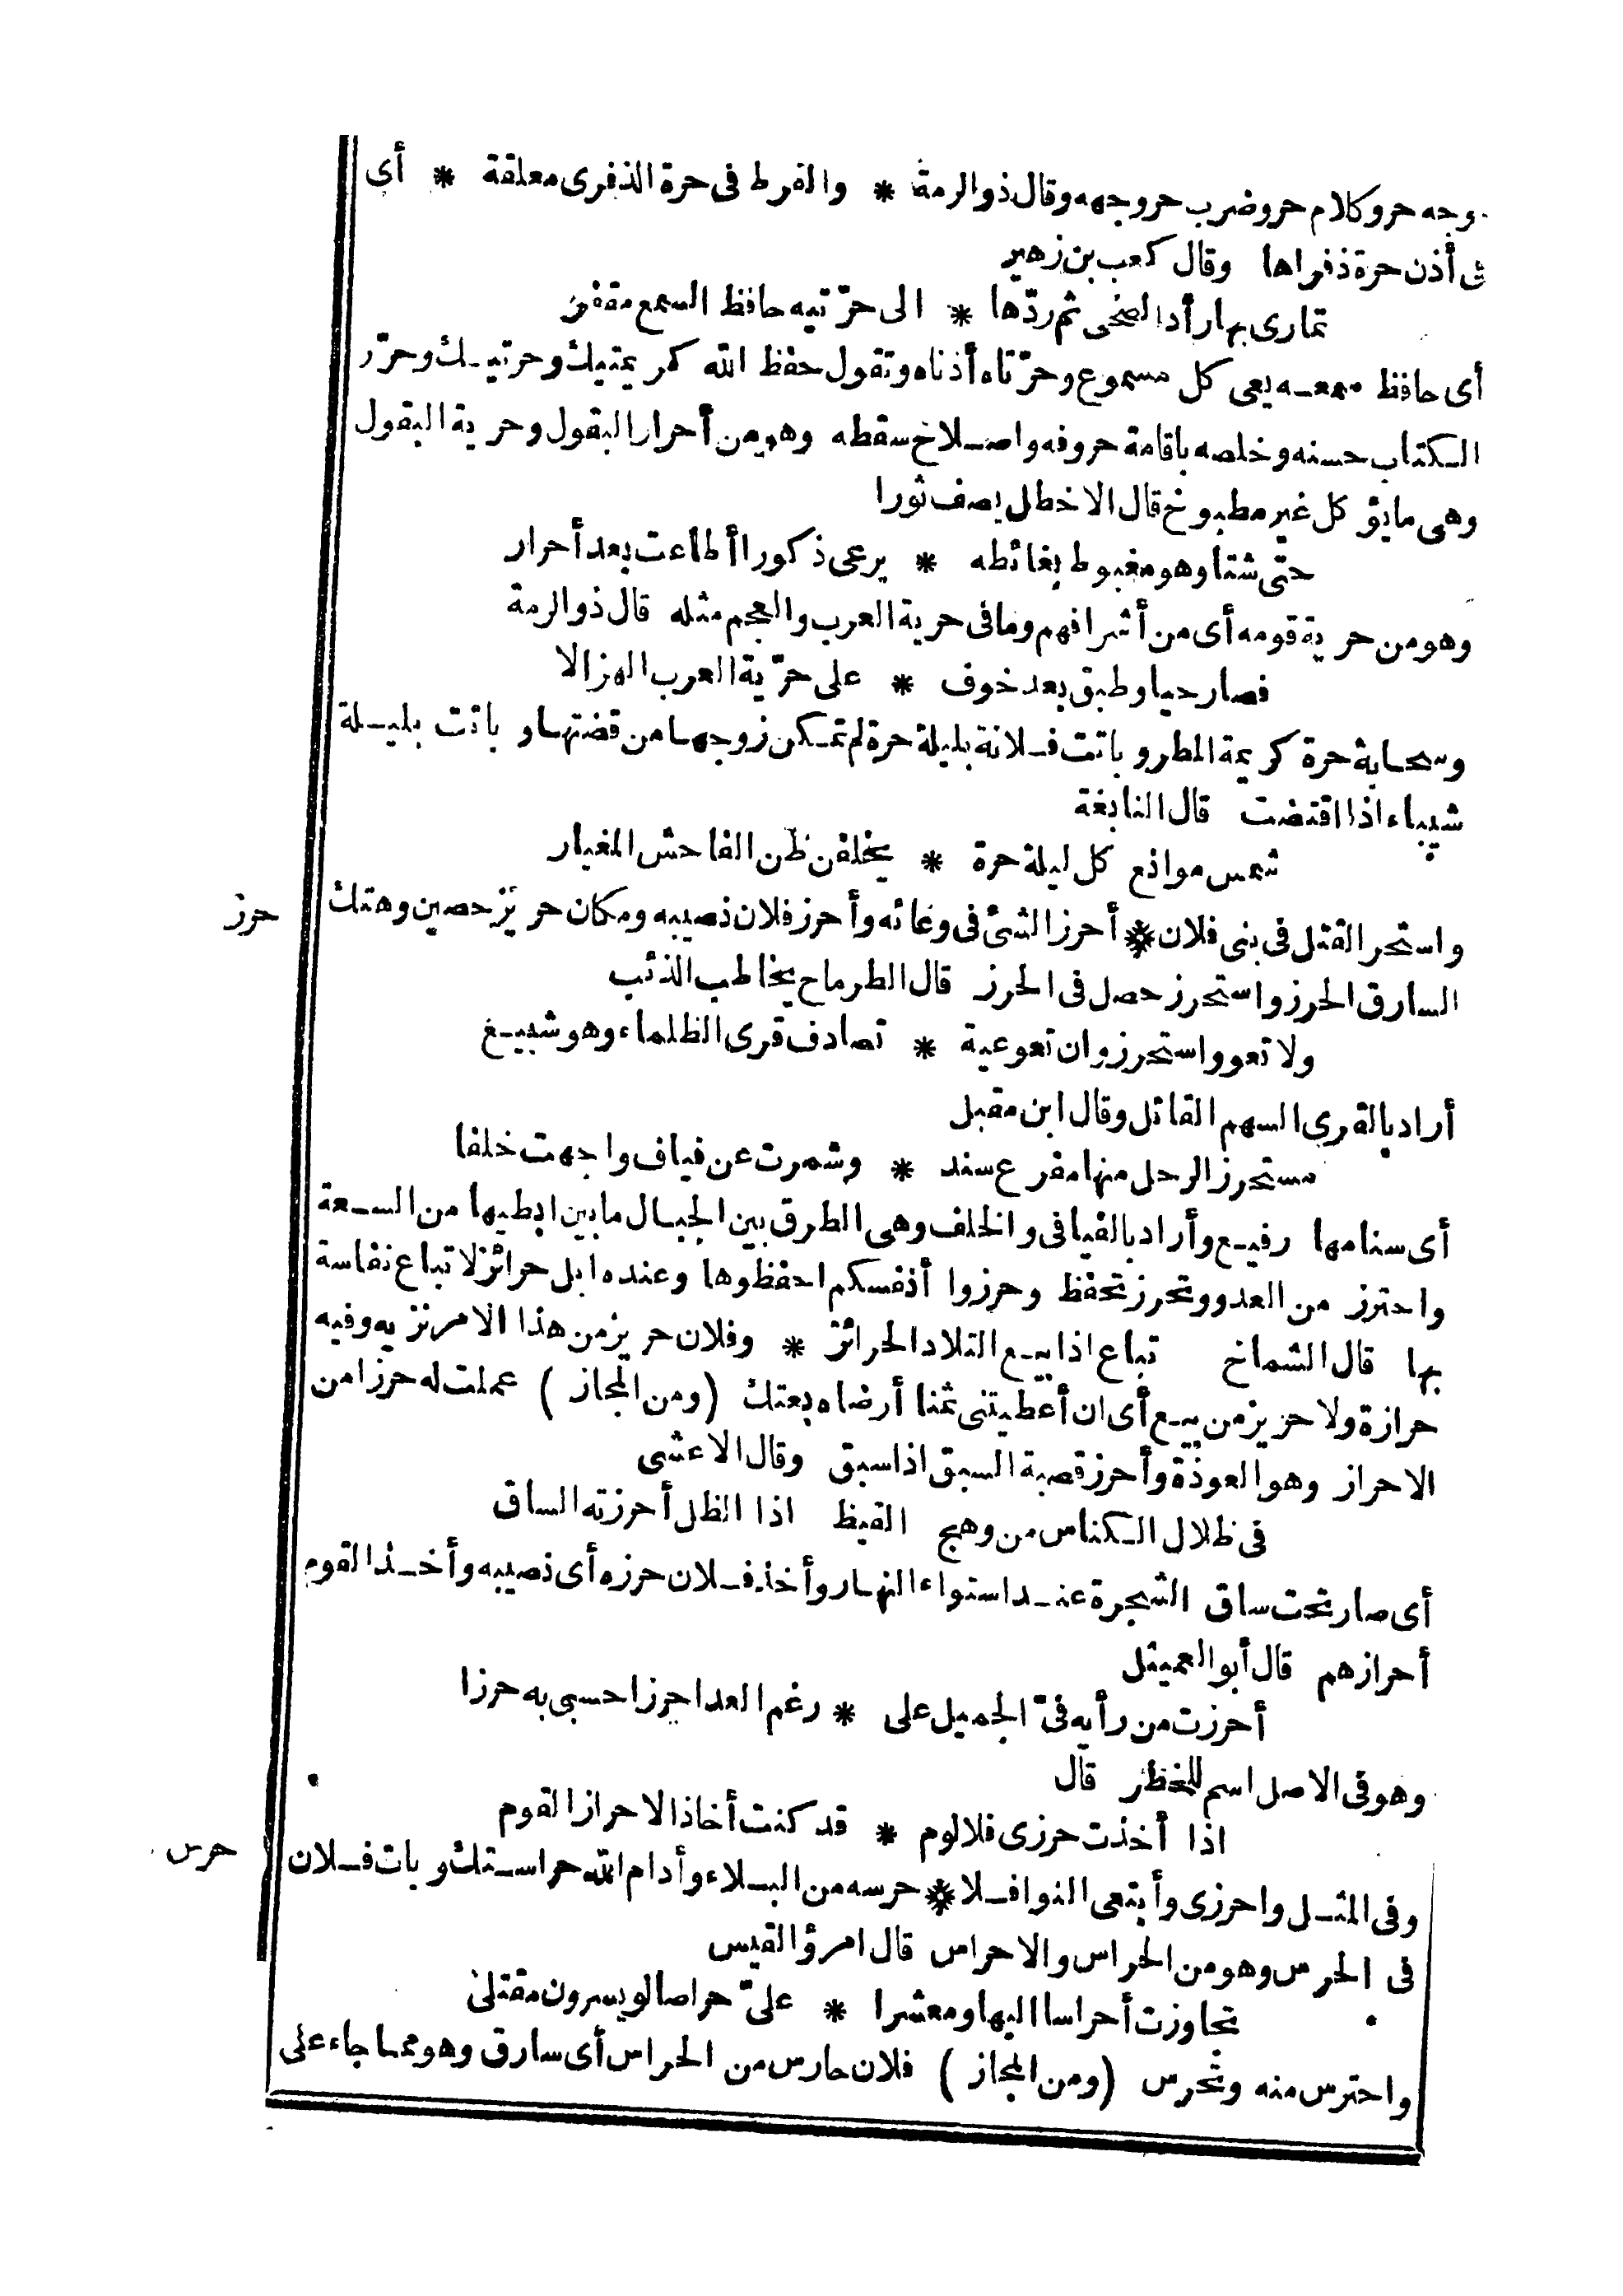 وجه حر وكلام حر وضرب حر وجهه وقال ذو الرمة * والقرط فى حرة الذفرى معلقة * أى
فى أذن حرة ذفراها وقال كعب بن زهير
تمارى بها رأد الضحى ثم ردّها * الى حرّتيه حافظ السمع مقفر
أى حافظ سمعه يعى كل مسموع وحرّتاه أذناه وتقول حفظ الله كريمتيك وحرتيك وحرّر
الكتاب حسنه وخلصه باقامة حروفه واصلاح سقطه وهو من أحرار البقول وحرية البقول
وهى ما يؤكل غير مطبوخ قال الاخطل يصف ثورا
حتى شتا وهو مغبوط بغائطه * يرعى ذكورا أطاعت بعد أحرار
وهو من حرية قومه أى من أشرافهم وما فى حرية العرب والعجم مثله قال ذو الرمة
فصار حيا وطبق بعد خوف * على حرّية العرب الهزالا
وسحابة حرة كريمة المطر وباتت فلانة بليلة حرة لم تمكن زوجها من قضتها وباتت بليلة
شيباء اذا اقتضت قال النابغة
شمس موانع كل ليلة حرة * يخلفن ظن الفاحش المغيار
واستحر القتل فى بنى فلان * أحرز الشئ فى وعائه وأحرز فلان نصيبه ومكان حريز حصين وهتك
حرز
السارق الحرز واستحرز حصل فى الحرز قال الطرماح يخاطب الذئب
ولا تعو واستحرز وان تعو عية * تصادف قرى الظلماء وهو شبيع
أراد بالقرى السهم القاتل وقال ابن مقبل
مستحرز الرحل منها مفرع سند * وشمرت عن فياف واجهت خلفا
أى سنامها رفيع وأراد بالفيافى والخلف وهى الطرق بين الجبال ما بين ابطيها من السعة
واحترز من العدو وتحرز تحفظ وحرزوا أنفسكم احفظوها وعنده ابل حرائز لا تباع نفاسة
بها قال الشماخ تباع اذا بيع التلاد الحرائز * وفلان حريز من هذا الامر نزيه وفيه
حرازة ولا حريز من بيع أى ان أعطيتنى ثمنا أرضاه بعتك (ومن المجاز) عملت له حرزا من
الاحراز وهو العوذة وأحرز قصبة السبق اذا سبق وقال الاعشى
فى ظلال الكناس من وهج القيظ اذا الظل أحرزته الساق
أى صار تحت ساق الشجرة عند استواء النهار وأخذ فلان حرزه أى نصيبه وأخذ القوم
أحرازهم قال أبو العميثل
أحرزت من رأيه فىّ الجميل على * رغم العدا حرزا حسبى به حرزا
وهو فى الاصل اسم للخطر قال
اذا أخذت حرزى فلا لوم * قد كنت أخاذا لاحراز القوم
وفى المثل واحرزى وأبتغى النوافلا * حرسه من البلاء وأدام الله حراستك وبات فلان
حرس
فى الحرس وهو من الحراس والاحراس قال امرؤ القيس
تجاوزت أحراسا اليها ومعشرا * علىّ حراصا لو يسرون مقتلى
واحترس منه وتحرس (ومن المجاز) فلان حارس من الحراس أى سارق وهو مما جاء على